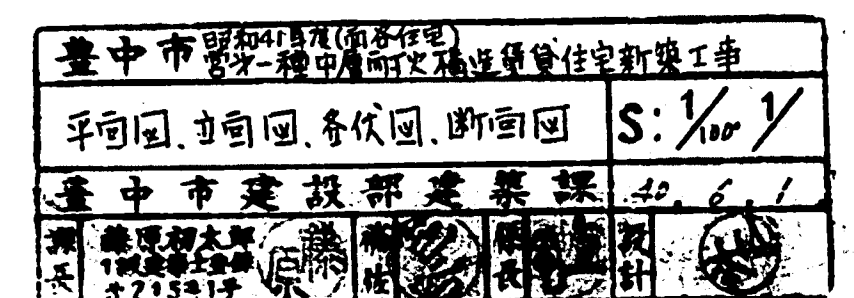 豊中市 昭和41年度(南各住宅)
営第一種中層耐火構造賃貸住宅新築工事
平面図.立面図.各伏図.断面図 S:1/100 1/
豊中市建設部建築課 40.6.1
課長 藤原初太郎 係長 設計
1級建築士登録